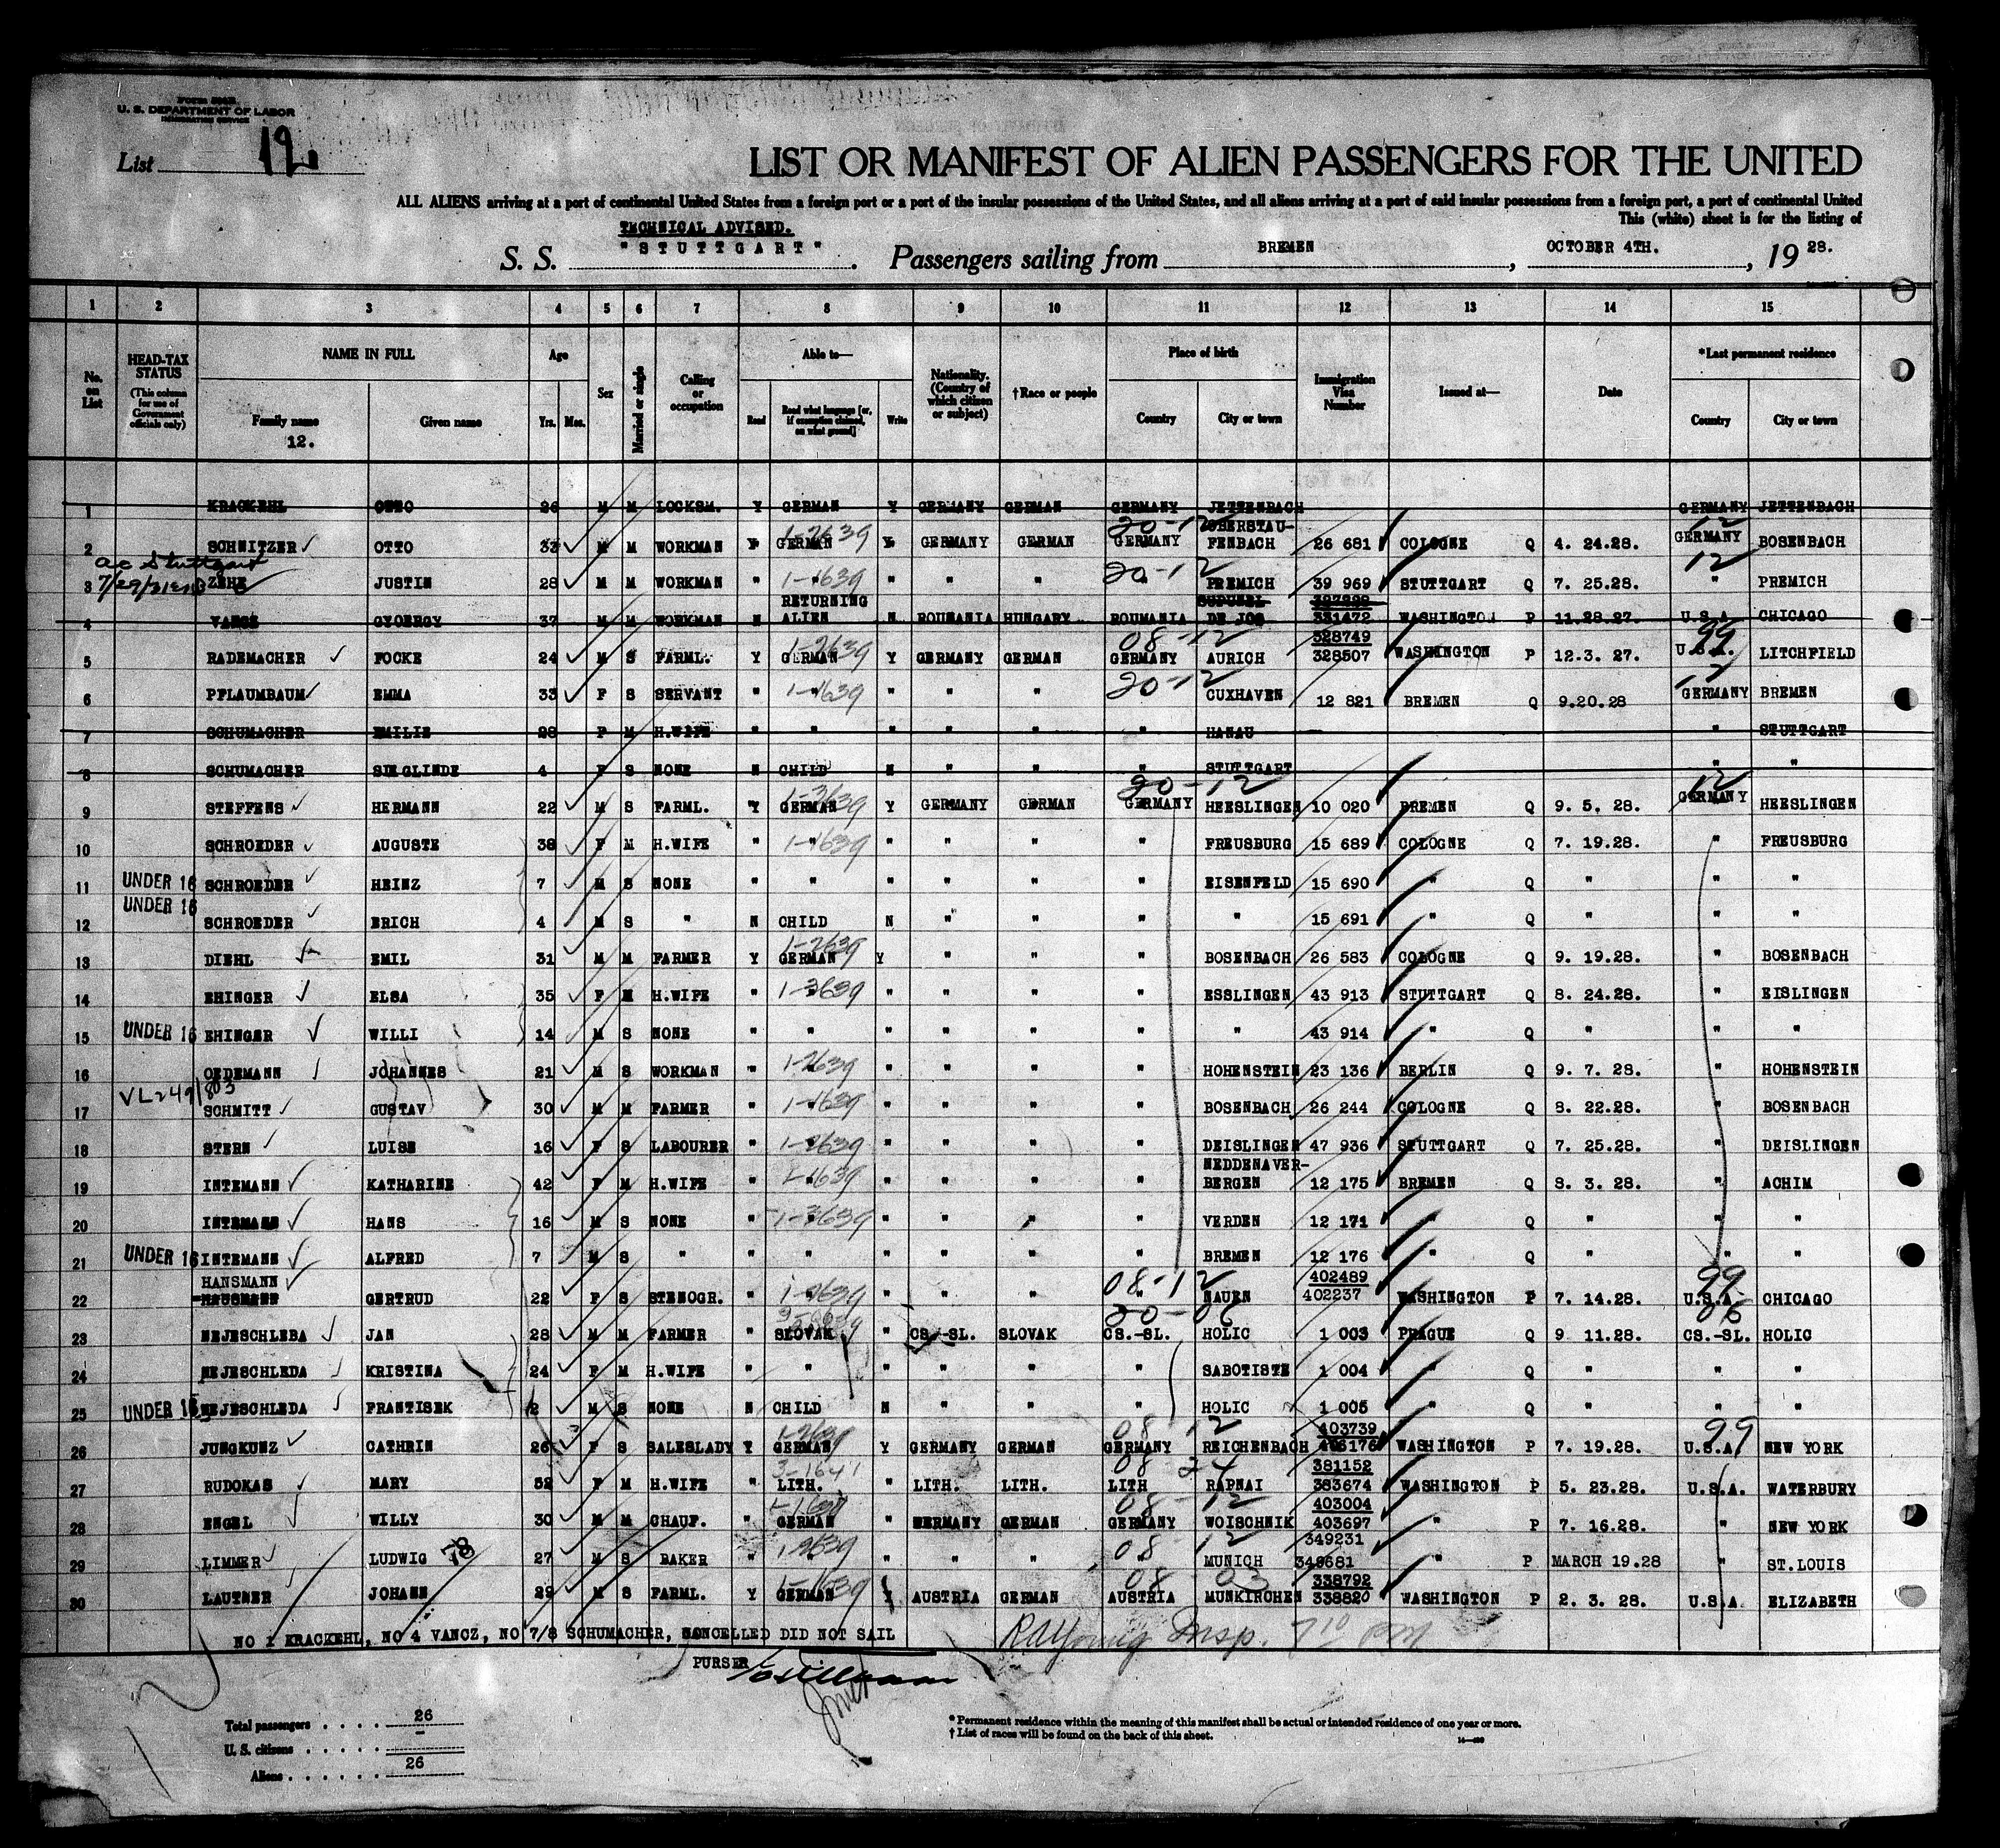 Form 500B
U. S. DEPARTMENT OF LABOR
IMMIGRATION SERVICE
List 12
LIST OR MANIFEST OF ALIEN PASSENGERS FOR THE UNITED
ALL ALIENS arriving at a port of continental United States from a foreign port or a port of the insular possessions of the United States, and all aliens arriving at a port of said insular possessions from a foreign port, a port of continental United
This (white) sheet is for the listing of
TECHNICAL ADVISED.
S. S. "STUTTGART". Passengers sailing from BREMEN, OCTOBER 4TH., 19 28.
1 2 3 4 5 6 7 8 9 10 11 12 13 14 15
No. on List
HEAD-TAX STATUS (This column for use of Government officials only)
NAME IN FULL Family name Given name
12.
Age Yrs. Mos.
Sex
Married or single
Calling or occupation
Able to— Read Read what language [or, if exemption claimed, on what ground] Write
Nationality. (Country of which citizen or subject)
†Race or people
Place of birth Country City or town
Immigration Visa Number
Issued at—
Date
*Last permanent residence Country City or town
1 KRACKEHL OTTO 26 M M LOCKSM. Y GERMAN Y GERMANY GERMAN GERMANY JETTENBACH GERMANY JETTENBACH
1-2639 20-12 OBERSTAU- 12
2 SCHNITZER OTTO 33 M M WORKMAN Y GERMAN Y GERMANY GERMAN GERMANY FENBACH 26 681 COLOGNE Q 4. 24.28. GERMANY BOSENBACH
ac Stuttgart 20-12 12
3 7/29/31 ZEHE JUSTIN 28 M M WORKMAN " 1-1639 " " " " PREMICH 39 969 STUTTGART Q 7. 25.28. " PREMICH
RETURNING
4 VANCZ GYOERGY 37 M M WORKMAN N ALIEN N ROUMANIA HUNGARY ROUMANIA DE JOS 331472 WASHINGTON P 11.28.27. U.S.A. CHICAGO
1-2639 08-12 328749 99
5 RADEMACHER FOCKE 24 M S FARML. Y GERMAN Y GERMANY GERMAN GERMANY AURICH 328507 WASHINGTON P 12.3. 27. U.S.A. LITCHFIELD
20-12 12
6 PFLAUMBAUM EMMA 33 F S SERVANT " 1-1639 " " " " CUXHAVEN 12 821 BREMEN Q 9.20.28 GERMANY BREMEN
7 SCHUMACHER EMILIE 28 F M H.WIFE " " " " " " HANAU " STUTTGART
8 SCHUMACHER SIEGLINDE 4 F S NONE N CHILD N " " " STUTTGART " "
1-3639 20-12 12
9 STEFFENS HERMANN 22 M S FARML. Y GERMAN Y GERMANY GERMAN GERMANY HEESLINGEN 10 020 BREMEN Q 9. 5. 28. GERMANY HEESLINGEN
10 SCHROEDER AUGUSTE 38 F M H.WIFE " 1-1639 " " " " FREUSBURG 15 689 COLOGNE Q 7. 19.28. " FREUSBURG
11 UNDER 16 SCHROEDER HEINZ 7 M S NONE " " " " " " EISENFELD 15 690 " Q " " "
12 UNDER 16 SCHROEDER ERICH 4 M S " N CHILD N " " " " 15 691 " Q " " "
1-2639
13 DIEHL EMIL 31 M M FARMER Y GERMAN Y " " " BOSENBACH 26 583 COLOGNE Q 9. 19.28. " BOSENBACH
14 EHINGER ELSA 35 F M H.WIFE " 1-3639 " " " " ESSLINGEN 43 913 STUTTGART Q 8. 24.28. " EISLINGEN
15 UNDER 16 EHINGER WILLI 14 M S NONE " " " " " " " 43 914 " Q " " "
16 OEDEMANN JOHANNES 21 M S WORKMAN " 1-2639 " " " " HOHENSTEIN 23 136 BERLIN Q 9. 7. 28. " HOHENSTEIN
VL 249/803
17 SCHMITT GUSTAV 30 M M FARMER " 1-1639 " " " " BOSENBACH 26 244 COLOGNE Q 8. 22.28. " BOSENBACH
18 STERN LUISE 16 F S LABOURER " 1-2639 " " " " DEISLINGEN 47 936 STUTTGART Q 7. 25.28. " DEISLINGEN
NEDDENAVER-
19 INTEMANN KATHARINE 42 F M H.WIFE " 1-1639 " " " " BERGEN 12 175 BREMEN Q 8. 3. 28. " ACHIM
20 INTEMANN HANS 16 M S NONE " 1-3639 " " " " VERDEN 12 171 " Q " " "
21 UNDER 16 INTEMANN ALFRED 7 M S " " " " " " " BREMEN 12 176 " Q " " "
HANSMANN 08-12 402489 99
22 HAUSMANN GERTRUD 22 F S STENOGR. " 1-2639 " " " " NAUEN 402237 WASHINGTON P 7. 14.28. U.S.A. CHICAGO
20-06 06
23 NEJESCHLEBA JAN 28 M M FARMER " SLOVAK " CS.-SL. SLOVAK CS.-SL. HOLIC 1 003 PRAGUE Q 9 11.28. CS.-SL. HOLIC
24 NEJESCHLEDA KRISTINA 24 F M H.WIFE " " " " " " SABOTISTE 1 004 " Q " " "
25 UNDER 16 NEJESCHLEDA FRANTISEK 2 M S NONE N CHILD N " " " HOLIC 1 005 " Q " " "
3 1-2639 08 12 403739 99
26 JUNGKUNZ CATHRIN 26 F S SALESLADY Y GERMAN Y GERMANY GERMAN GERMANY REICHENBACH 406176 WASHINGTON P 7. 19.28. U.S.A. NEW YORK
3-1641 08 24 381152
27 RUDOKAS MARY 52 F M H.WIFE " LITH. " LITH. LITH. LITH RAPNAI 383674 WASHINGTON P 5. 23.28. U.S.A. WATERBURY
08-12 403004
28 ENGEL WILLY 30 M M CHAUF. " GERMAN " NERMANY GERMAN GERMANY WOISCHNIK 403697 " P 7. 16.28. " NEW YORK
08 12 349231
29 LIMMER LUDWIG 78 27 M S BAKER " 1-2639 " " " " MUNICH 349681 " P MARCH 19.28 " ST.LOUIS
1-1639 08 03 338792
30 LAUTNER JOHANN 29 M S FARML. Y GERMAN Y AUSTRIA GERMAN AUSTRIA MUNKIRCHEN 338820 WASHINGTON P 2. 3. 28. U.S.A. ELIZABETH
NO 1 KRACKEHL, NO 4 VANCZ, NO 7/8 SCHUMACHER, CANCELLED DID NOT SAIL
RAYoung Insp.
PURSER
12
Total passengers . . . . 26
U. S. citizens . . . . . –
Aliens . . . . . . 26
* Permanent residence within the meaning of this manifest shall be actual or intended residence of one year or more.
† List of races will be found on the back of this sheet.